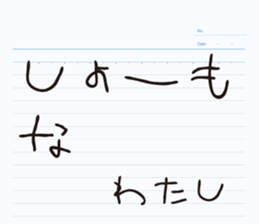 No.
Date
しょーも
な
わたし